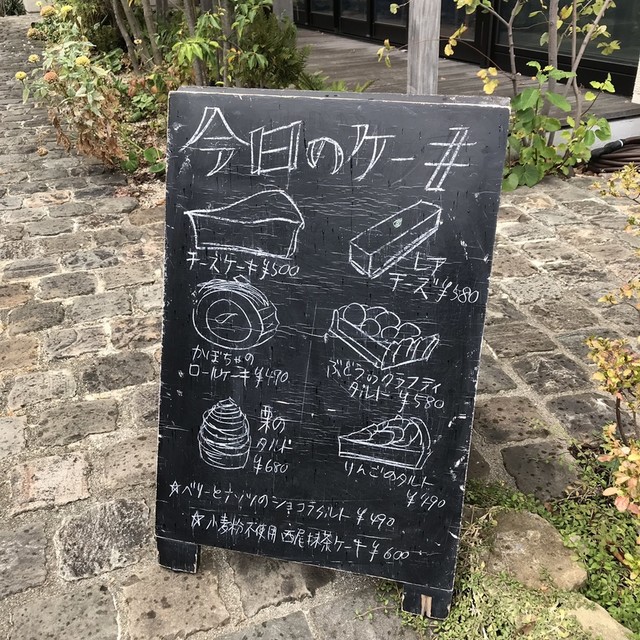 今日のケーキ
チーズケーキ ¥500
レア
チーズ ¥580
かぼちゃの
ロールケーキ ¥490
ぶどうのクラフティ
タルト ¥580
栗の
タルト
¥680
りんごのタルト
¥490
☆ベリーとナッツのショコラタルト ¥490
☆小麦粉不使用 西尾抹茶ケーキ ¥600